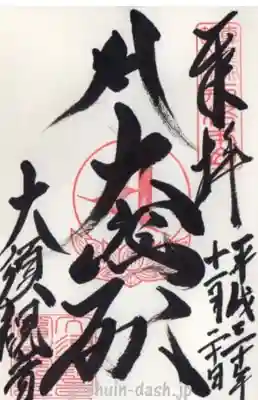 奉拝
平成三十年
十一月二十日
大悲殿
大須観音
huin-dash.jp